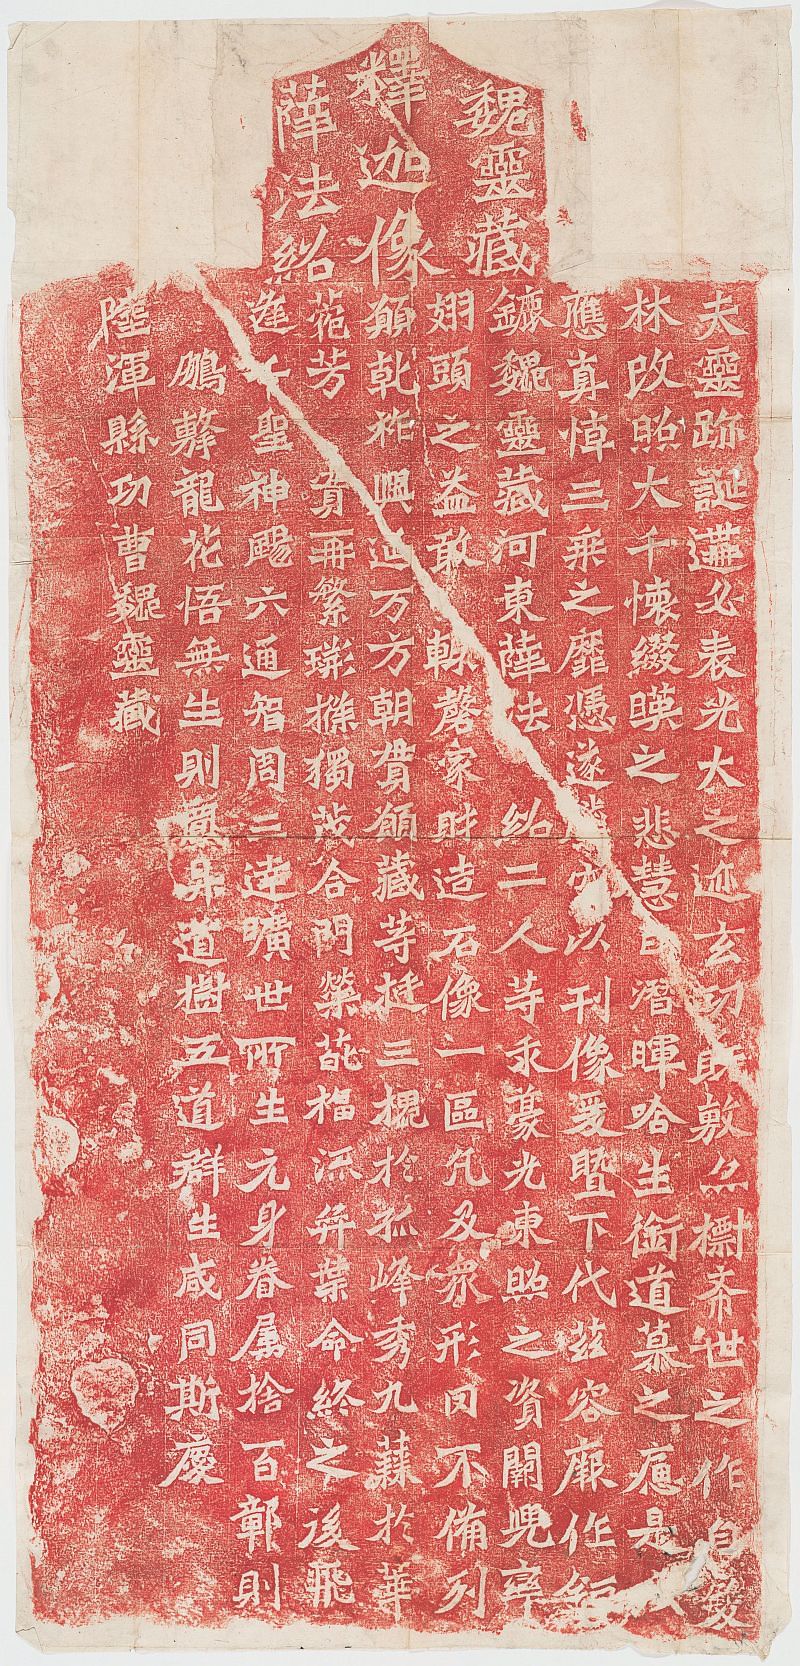 魏靈藏
釋迦像
薛法紹
夫靈跡誕遘必表光大之迹玄功既敷亦標希世之作自雙
林改照大千懷綴暎之悲慧日潛暉唅生銜道慕之痛是以
應真悼三乘之靡憑遂騰空以刊像爰暨下代茲容厥作鉅
鏕魏靈藏河東薛法紹二人等求豪光東照之資闕兜率
翅頭之益敢輒磬家財造石像一區凡及衆形罔不備列
願乾祚興延万方朝貫願藏等挺三槐於孤峰秀九蕀於華
菀芳實再繁荆條獨茂合門榮葩福流奕葉命終之後飛
逢千聖神颺六通智周三達曠世所生元身眷屬捨百鄣則
鵬擊龍花悟無生則昇道樹五道群生咸同斯慶
陸渾縣功曹魏靈藏